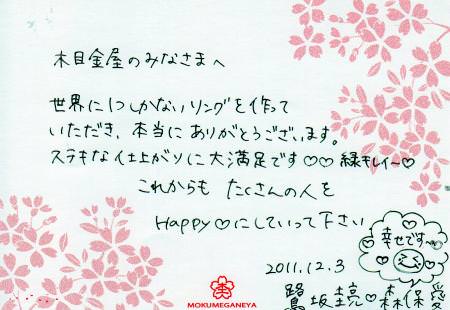 木目金屋のみなさまへ
世界に1つしかないリングを作って
いただき、本当にありがとうございます。
ステキな仕上がりに大満足です♡♡ 緑キレイ〜♡
これからも たくさんの人を
Happy♡にしていって下さい
幸せです〜
2011.12.3
坂 亮♡森保愛
MOKUMEGANEYA